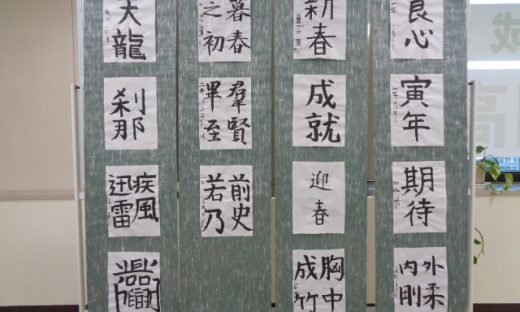 天龍
暮春
之初
新春
良心
刹那
羣賢
畢至
成就
寅年
疾風
迅雷
前史
若乃
迎春
期待
胸中
成竹
外柔
内剛